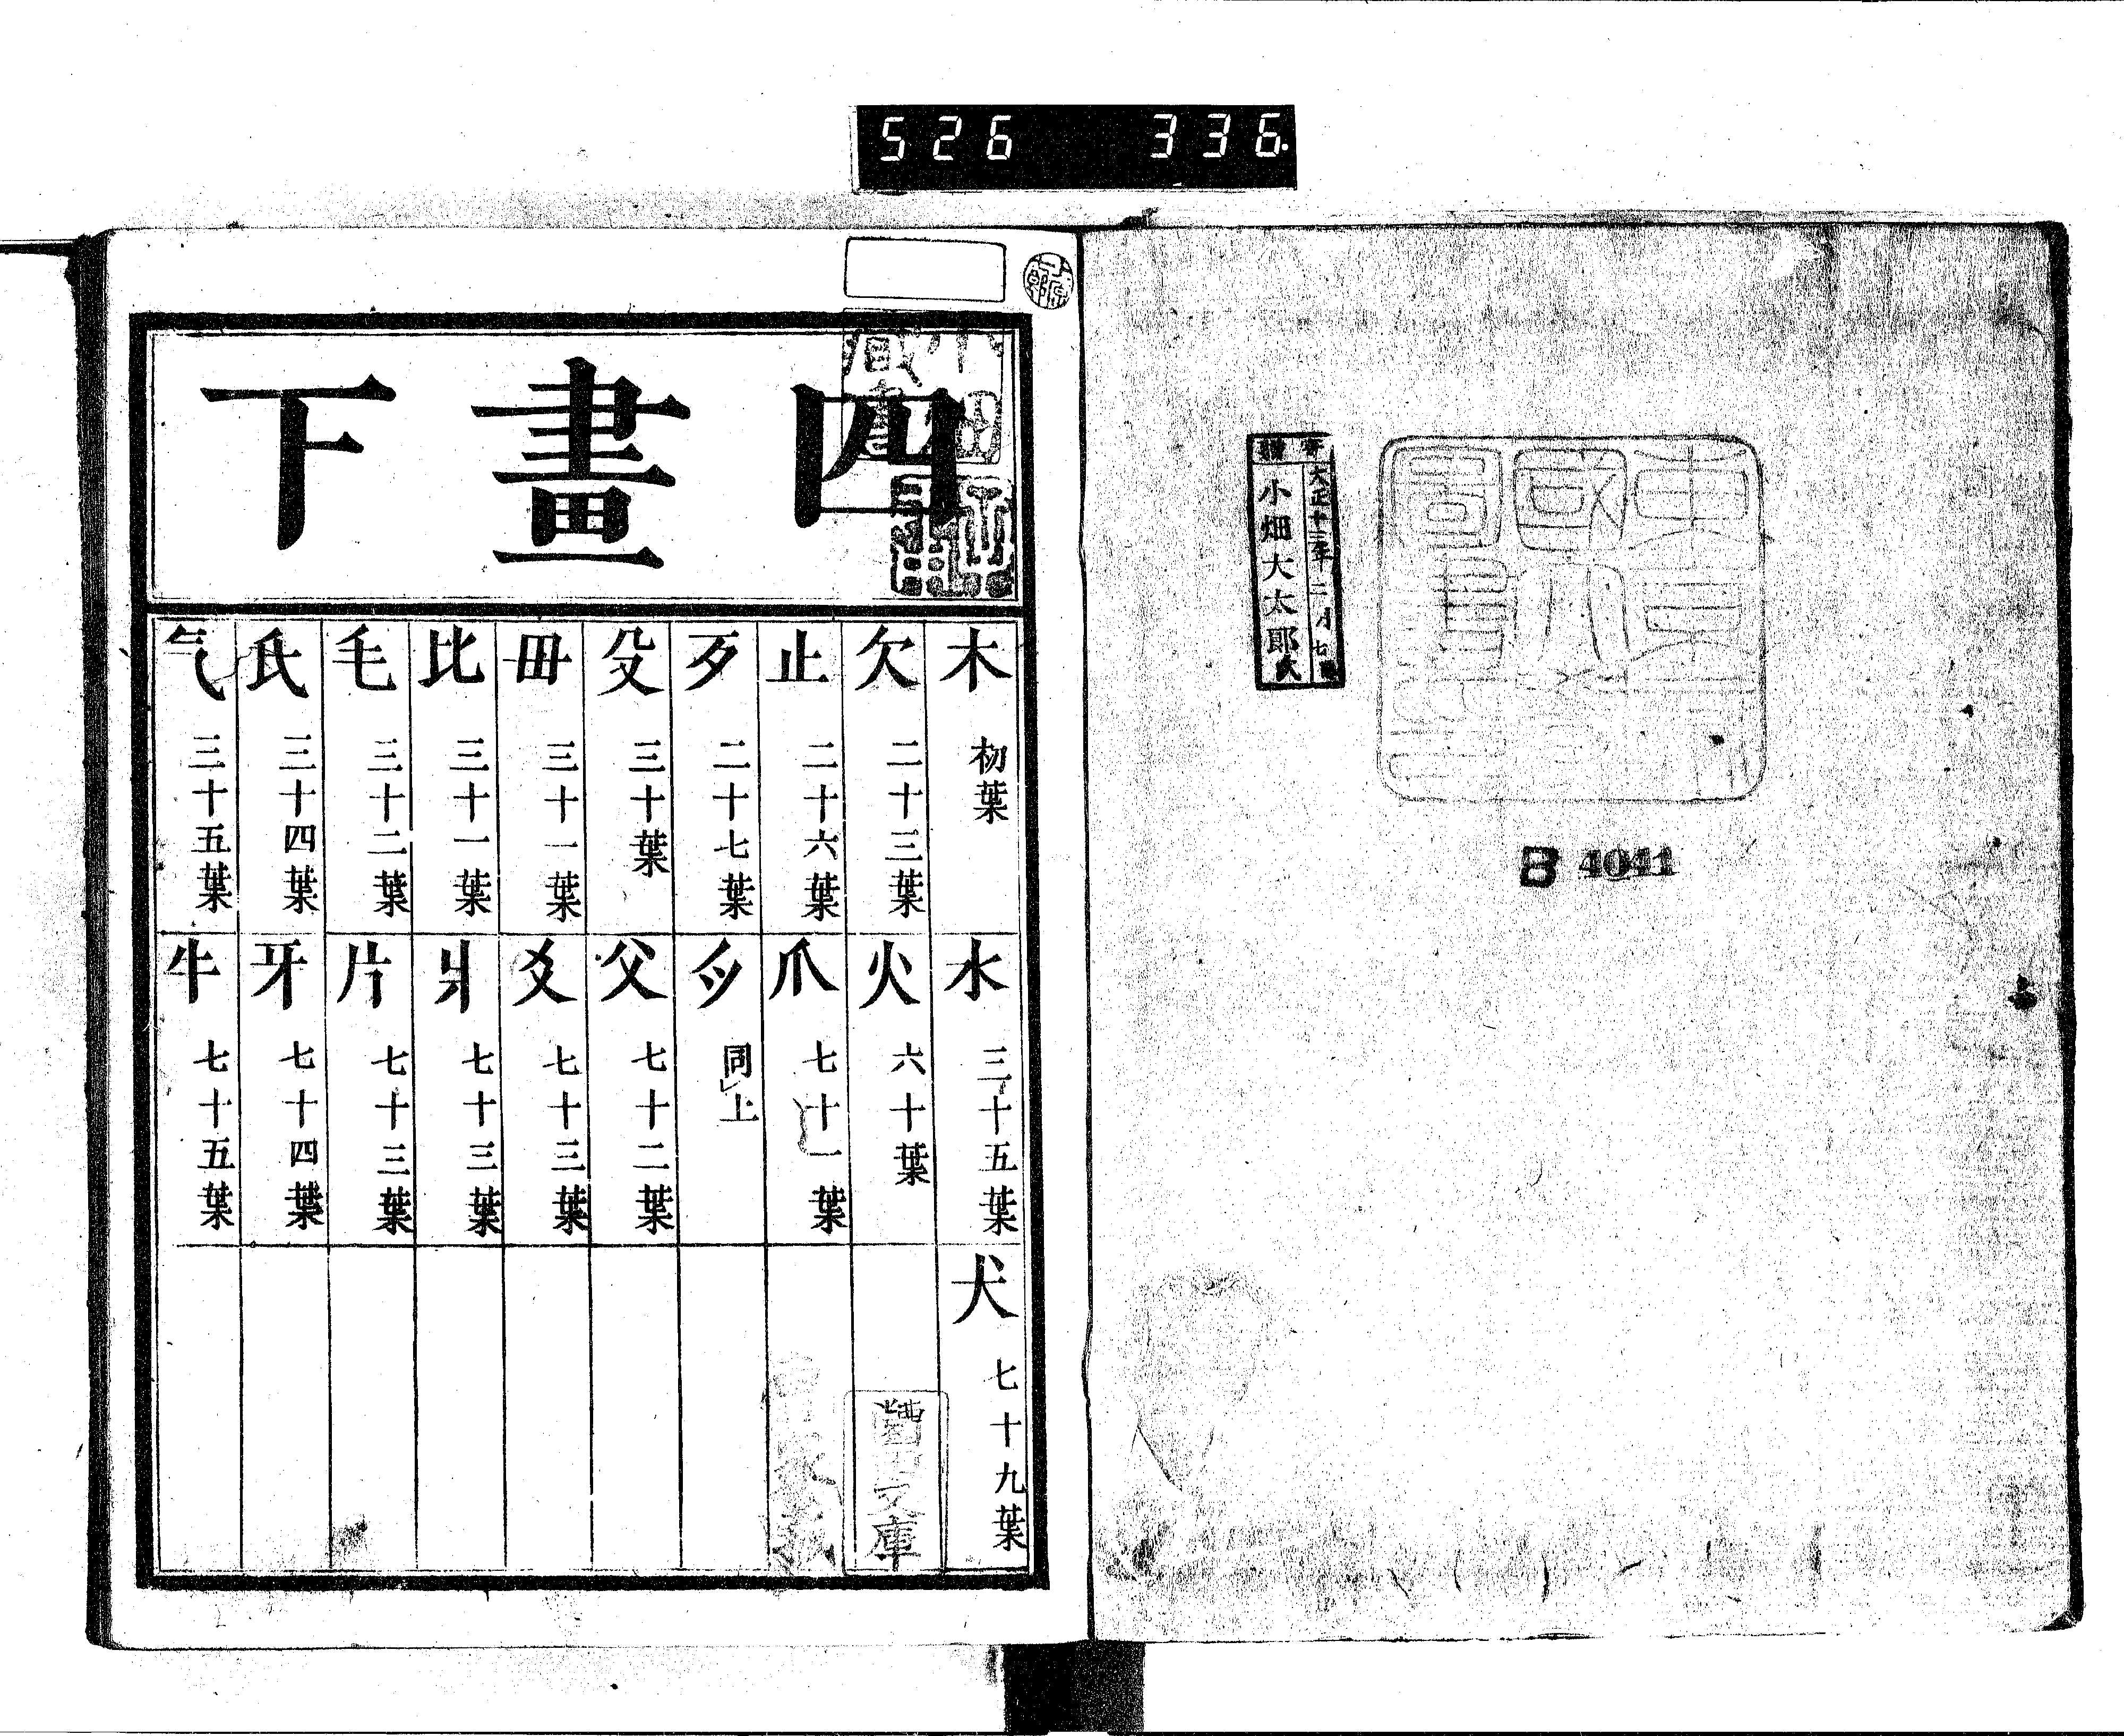 526 336.
寄贈
大正十三年二月七
小畑大太郎氏
8 4041
四畫下
木 初葉
欠 二十三葉
止 二十六葉
歹 二十七葉
殳 三十葉
毌 三十一葉
比 三十一葉
毛 三十二葉
氏 三十四葉
气 三十五葉
水 三十五葉
火 六十葉
爪 七十一葉
爫 同上
父 七十二葉
爻 七十三葉
爿 七十三葉
片 七十三葉
牙 七十四葉
牛 七十五葉
犬 七十九葉
文庫